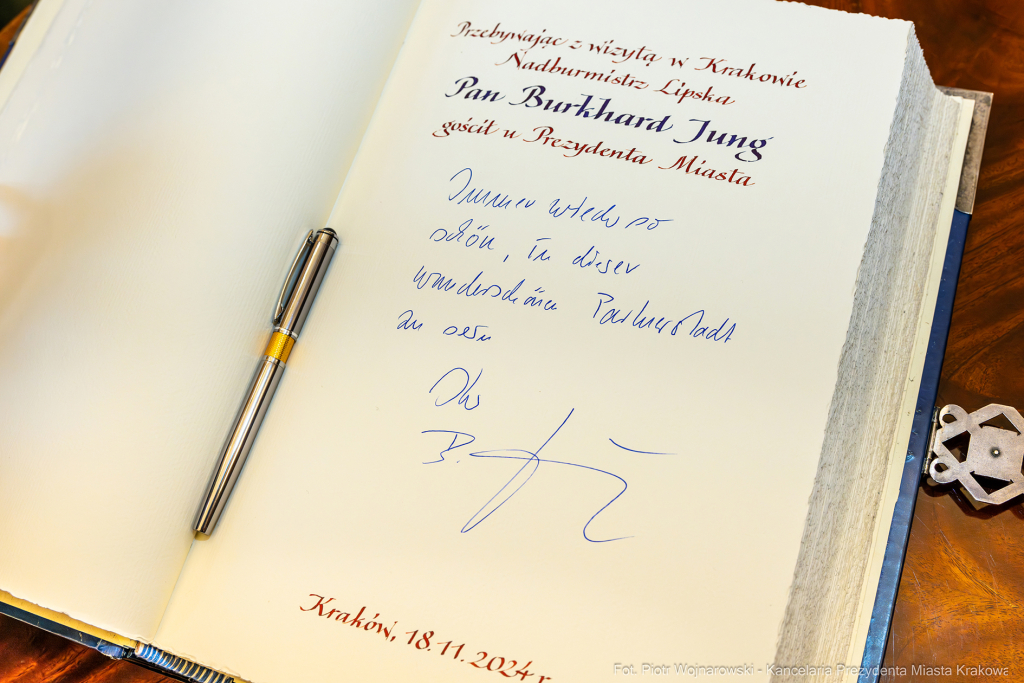 Przebywając z wizytą w Krakowie
Nadburmistrz Lipska
Pan Burkhard Jung
gościł u Prezydenta Miasta
Immer wieder so
schön, in dieser
wunderschönen Partnerstadt
zu sein
Ihr
B.
Kraków, 18.11.2024 r
Fot. Piotr Wojnarowski - Kancelaria Prezydenta Miasta Krakowa